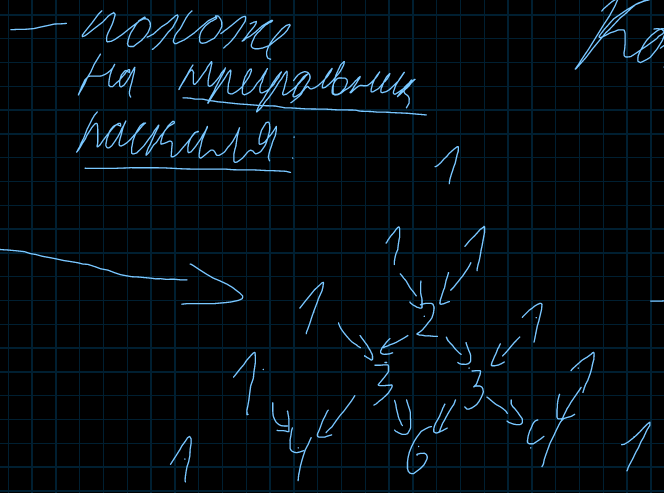 — похоже
на треугольник
паскаля:
Ко
1
1 1
1 2 1
1 3 3 1
1 4 6 4 1